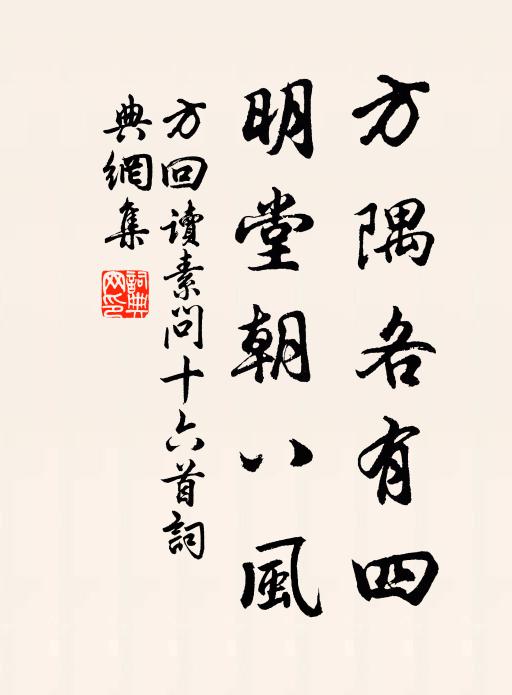 方隅各有四
明堂朝八風
方回讀素問十六首詞
典網集
詞典網印